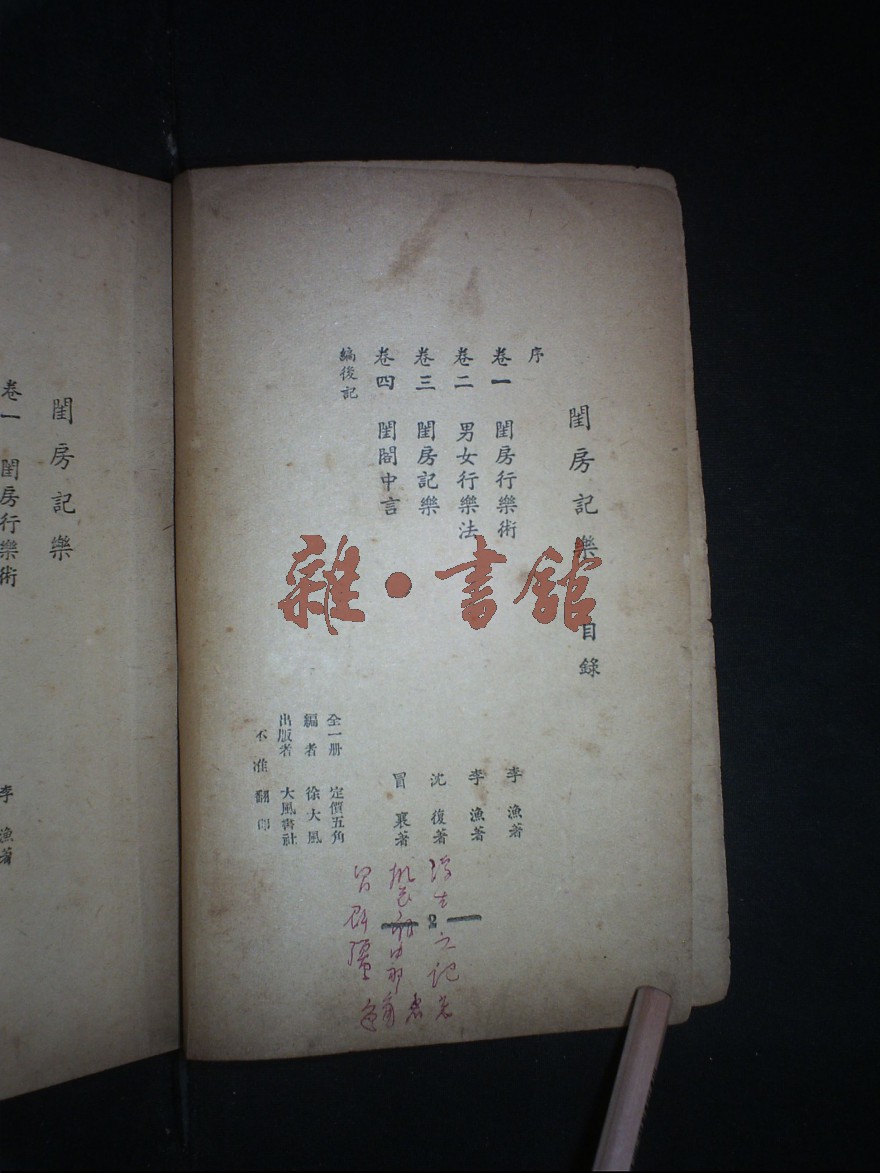 閨房記樂目錄
序
卷一 閨房行樂術 李漁著
卷二 男女行樂法 李漁著
卷三 閨房記樂 沈復著
卷四 閨閣中言 冒襄著
編後記
全一册 定價五角
編者 徐大風
出版者 大風書社
不准翻印
2
雜·書館
閨房記樂
卷一 閨房行樂術
李漁著